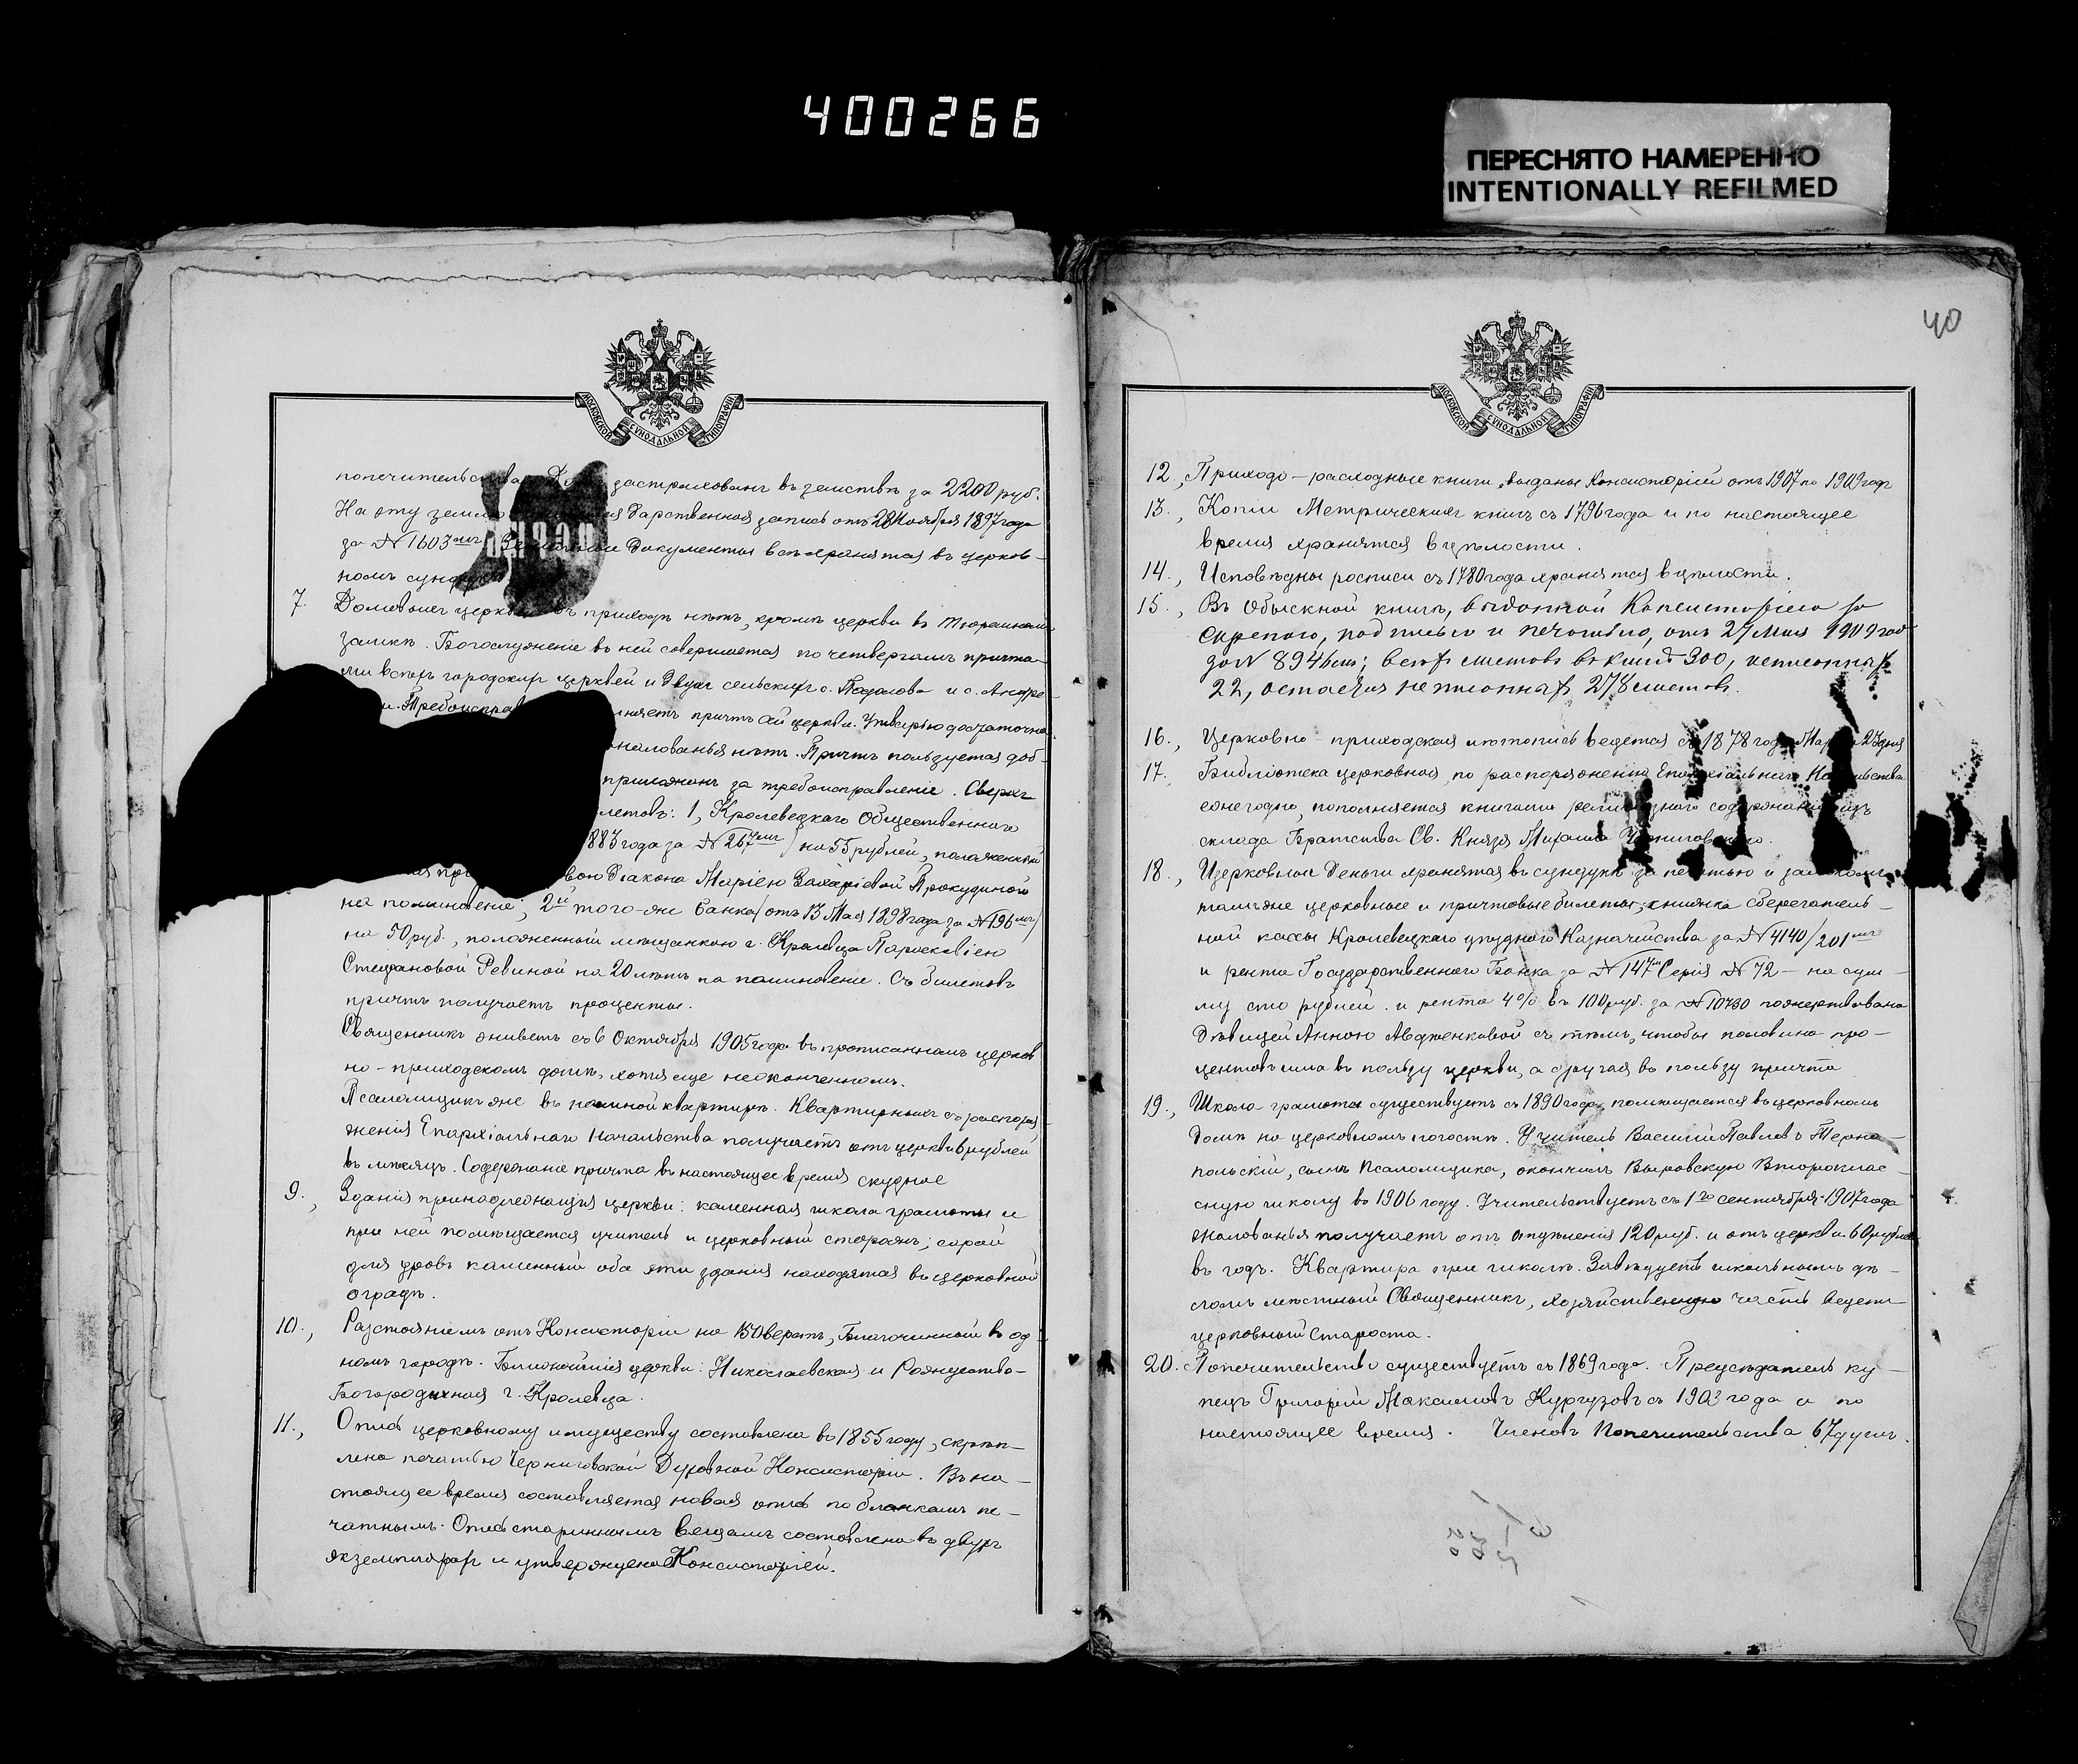 400266
ПЕРЕСНЯТО НАМЕРЕННО
INTENTIONALLY REFILMED
МОСКОВСКОЙ СУНОДАЛЬНОЙ ТИПОГРАФІИ
попечительства застрахованъ въ земствѣ за 2200 руб.
На эту землю дарственная запись отъ 28 Ноября 1897 года
за № 1603мъ документы всѣ хранятся въ церков-
номъ
7. Домовыхъ церквей въ приходѣ нѣтъ, кромѣ церкви въ тюремномъ
замкѣ. Богослуженіе въ ней совершается по четвергамъ причта-
ми всѣхъ городскихъ церквей и двухъ сельскихъ с. Подолова и с. Андре-
причтъ сей церкви. Утварью достаточна
жалованья нѣтъ. Причтъ пользуется доб-
прихожанъ за требоисправленіе. Сверхъ
летовъ: 1, Кролевецкаго Общественнаго
883 года за № 267мъ) на 55 рублей, положенный
вою Діакона Маріею Захаріевой Прокудиной
на поминовеніе; 2й того-же банка (отъ 13 Мая 1898 года за № 196мъ)
на 50 руб., положенный мѣщанкою г. Кролевца Параскевіею
Стефановой Ревиной на 20 лѣтъ на поминовеніе. Съ билетовъ
причтъ получаетъ проценты.
Священникъ живетъ съ 6 Октября 1905 года въ прописанномъ церков
но-приходскомъ домѣ, хотя еще неоконченномъ.
Псаломщикъ же въ наемной квартирѣ. Квартирныхъ съ распоря-
женія Епархіальнаго Начальства получаетъ отъ церкви 6 рублей
въ мѣсяцъ. Содержаніе причта въ настоящее время скудное
9., Зданія принадлежащія церкви: каменная школа грамоты и
при ней помѣщается учитель и церковный сторожъ; сарай
для дровъ каменный оба эти зданія находятся въ церковной
оградѣ.
10., Разстояніемъ отъ Консисторіи на 150 верстъ, Благочинный въ од-
номъ городѣ. Ближайшія церкви: Николаевская и Рождество-
Богородичная г. Кролевца.
11., Опись церковному имуществу составлена въ 1855 году, скрѣп-
лена печатью Черниговской Духовной Консисторіи. Въ на-
стоящее время составляется новая опись по бланкамъ пе-
чатнымъ. Опись стариннымъ вещамъ составлена въ двухъ
экземплярахъ и утверждена Консисторіей.
40
МОСКОВСКОЙ СУНОДАЛЬНОЙ ТИПОГРАФІИ
12., Приходо-расходныя книги, выданы Консисторіей отъ 1907 по 1909 годъ
13., Копіи Метрическихъ книгъ съ 1796 года и по настоящее
время хранятся въ цѣлости.
14., Исповѣдныя росписи съ 1780 года хранятся въ цѣлости.
15., Въ Обыскной книгѣ, выданной Консисторіею за
скрепою, подписью и печатью, отъ 27 Мая 1909 года
за № 8946мъ; всѣхъ листовъ въ книгѣ 300, исписанныхъ
22, остается неписанныхъ 278 листовъ.
16., Церковно-приходская лѣтопись ведется съ 1878 года Марта 23 дня
17. Библіотека церковная, по распоряженію Епархіальнаго Начальства
ежегодно, пополняется книгами религіознаго содержанія изъ
склада Братства Св. Князя Михаила Черниговскаго.
18., Церковныя деньги хранятся въ сундукѣ за печатью и замкомъ,
тамъ же церковные и причтовые билеты; книжка сберегатель-
ной кассы Кролевецкаго уѣзднаго Казначейства за № 4140/201мъ
и рента Государственнаго Банка за № 147м Серія № 72 – на сум-
му сто рублей. и рента 4% въ 100 руб. за № 10730 пожертвована
дѣвицей Анною Авдженковой съ тѣмъ, чтобы половина про-
центовъ шла въ пользу церкви, а другая въ пользу причта
19., Школа грамоты существуетъ съ 1890 года, помѣщается въ церковномъ
домѣ на церковномъ погостѣ. Учитель Василій Павловъ Терно-
польскій, сынъ псаломщика, окончилъ Выровскую Второклас-
сную школу въ 1906 году. Учительствуетъ съ 1го сентября 1907 года
жалованья получаетъ отъ отдѣленія 120 руб. и отъ церкви 60 рублей
въ годъ. Квартира при школѣ. Завѣдуетъ школьнымъ дѣ-
ломъ мѣстный Священникъ, хозяйственную часть ведетъ
церковный староста.
20. Попечительство существуетъ съ 1869 года. Предсѣдатель ку-
пецъ Григорій Максимовъ Кургузовъ съ 1903 года и по
настоящее время. Членовъ Попечительства 67 душъ.